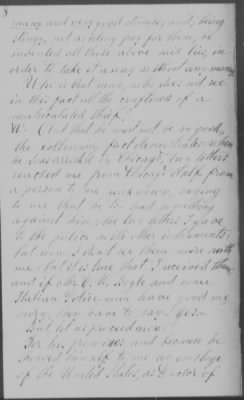 8
many and very good stamps, and, being
stingy, not wishing pay for them, he
invented all those above said lies, in
order to take it away without any money.
Who is that man, who does not see
in this fact all the craftiness of a
matriculated thief.
VI: And that he must not be so good,
the following fact demonstrates: when
he was arrested in Chicago, two letters
reached me from Chicago itself from
a person to me unknown, saying
to me that he too had something
against him; the two letters I gave
to the police with other instruments;
but now I do not see them more with
me; but it is true that I received them,
and if Mr. C. H. Bogle and some
Italian Police-man have good me
mory, they have to say: Yes.
But let us proceed now.
For his promises and because he
showed himself to me an employe
of the United States, as Director of